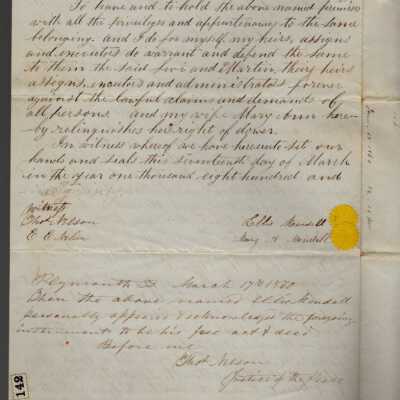 To have and to hold the above named premises
with all the privileges and appurtenances to the same
belonging. and I do for myself, my heirs, assigns
and executors do warrant and defend the same
to them the said and Martin, they heirs
assigns executors and administrators forever
against the lawful claims and demands of
all persons and my wife Mary Ann here-
by relinquishes her right of dower.
In witness whereof we have hereunto set our
hands and seals this seventeenth day of March
in the year one thousand eight hundred and
Witness
Thos Nelson
E E Nelson
Ellis Mendall
Mary A Mendall
Plymouth SS March 17th 1860
Then the above named Ellis Mendall
personally appeared & acknowledged the foregoing
instrument to be his free act & deed
Before me
Thos Nelson
Justice of the Peace
142